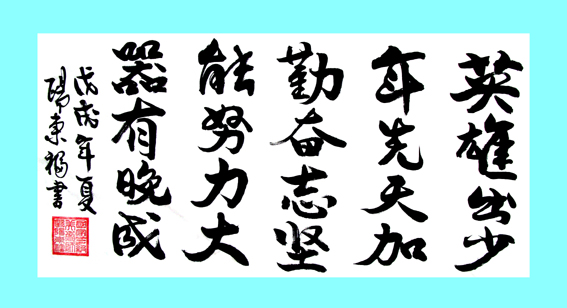 英雄出少
年先天加
勤奋志坚
能努力大
器有晚成
戊戌年夏
陽東福書